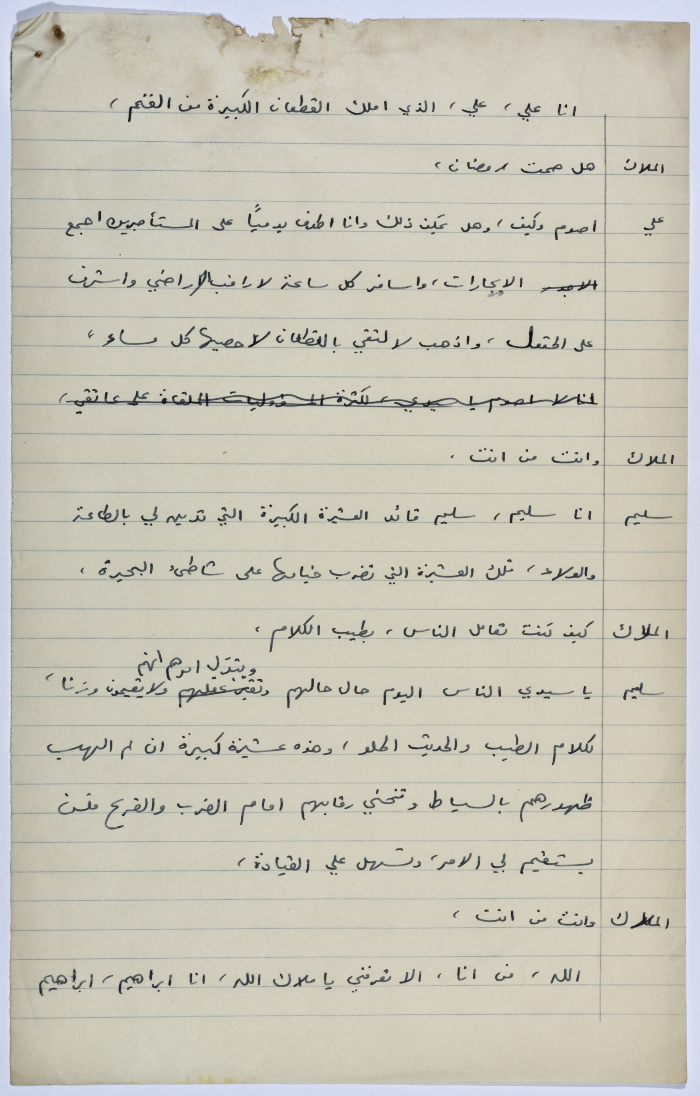 انا علي ، علي ، الذي املك القطعان الكبيرة من الغنم ،
الملاك هل صمت رمضان ،
علي اصوم وكيف ، وهل يمكن ذلك وانا اطوف يومياً على المستأجرين اجمع
الايجارات ، واسافر كل ساعة لاراقب الاراضي واشرف
على الحقول ، واذهب لالتقي بالقطعان لاحصيها كل مساء ،
انا لا اصوم يا سيدي ، لكثرة المسؤوليات الملقاة على عاتقي ،
الملاك وانت من انت ،
سليم انا سليم ، سليم قائد العشيرة الكبيرة التي تدين لي بالطاعة
والولاء ، تلك العشيرة التي تضرب خيامها على شاطئ البحيرة ،
الملاك كيف كنت تعامل الناس ، بطيب الكلام ،
ويتبدل امرهم انهم
سليم يا سيدي الناس اليوم حال حالهم ولا يقيمون وزنا ،
لكلام الطيب والحديث الحلو ، وهذه عشيرة كبيرة ان لم الهب
ظهورهم بالسياط وتنحني رقابهم امام الضرب والقرع فلن
يستقيم لي الامر ، وتسهل علي القيادة ،
الملاك وانت من انت ،
الله ، من انا ، الا تعرفني يا ملاك الله ، انا ابراهيم ، ابراهيم